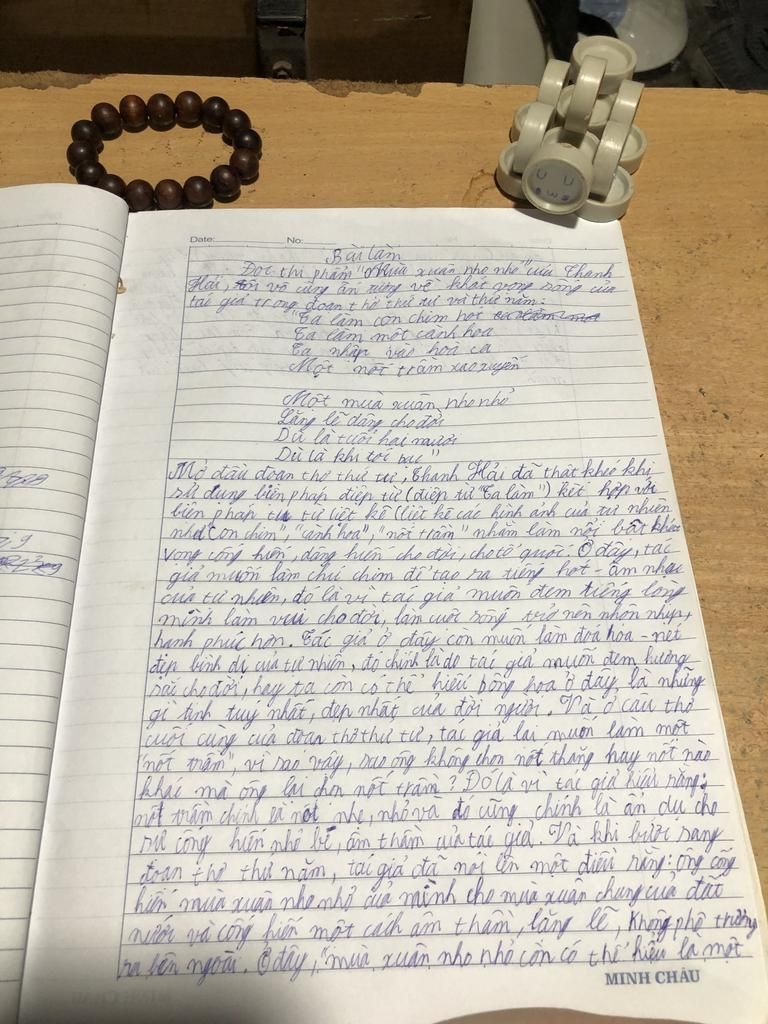 Date: No:
Bài làm
Đọc thi phẩm "Mùa xuân nho nhỏ" của Thanh
Hải, tôi vô cùng ấn tượng về khát vọng sống của
tác giả trong đoạn thơ thứ tư và thứ năm:
"Ta làm con chim hót
Ta làm một cành hoa
Ta nhập vào hoà ca
Một nốt trầm xao xuyến
Một mùa xuân nho nhỏ
Lặng lẽ dâng cho đời
Dù là tuổi hai mươi
Dù là khi tóc bạc"
Mở đầu đoạn thơ thứ tư, Thanh Hải đã thật khéo khi
sử dụng biện pháp điệp từ (điệp từ "Ta làm") kết hợp với
biện pháp tu từ liệt kê (liệt kê các hình ảnh của tự nhiên
như "con chim", "cành hoa", "nốt trầm" nhằm làm nổi bật khát
vọng cống hiến, dâng hiến cho đời, cho tổ quốc. Ở đây, tác
giả muốn làm chú chim để tạo ra tiếng hót - âm nhạc
của tự nhiên, đó là vì tác giả muốn đem tiếng lòng
mình làm vui cho đời, làm cuộc sống trở nên nhộn nhịp,
hạnh phúc hơn. Tác giả ở đây còn muốn làm đoá hoa - nét
đẹp bình dị của tự nhiên, đó chính là do tác giả muốn đem hương
sắc cho đời, hay ta còn có thể hiểu bông hoa ở đây là những
gì tinh tuý nhất, đẹp nhất của đời người. Và ở câu thơ
cuối cùng của đoạn thơ thứ tư, tác giả lại muốn làm một
"nốt trầm", vì sao vậy, sao ông không chọn nốt thăng hay nốt nào
khác mà ông lại chọn nốt trầm? Đó là vì tác giả hiểu rằng:
nốt trầm chính là nốt nhẹ, nhỏ và đó cũng chính là ẩn dụ cho
sự cống hiến nhỏ bé, âm thầm của tác giả. Và khi bước sang
đoạn thơ thứ năm, tác giả đã nói lên một điều rằng: ông cống
hiến mùa xuân nho nhỏ của mình cho mùa xuân chung của đất
nước và cống hiến một cách âm thầm, lặng lẽ, không phô trương
ra bên ngoài. Ở đây, "mùa xuân nho nhỏ còn có thể hiểu là một
MINH CHÂU